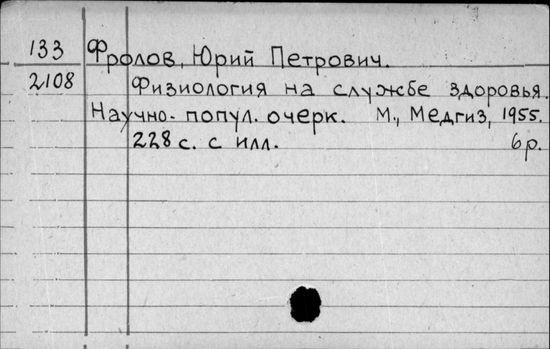 133 Фролов, Юрий Петрович.
2108 Физиология на службе здоровья.
Научно-попул. очерк. М., Медгиз, 1955.
228 с. с илл. 6 р.